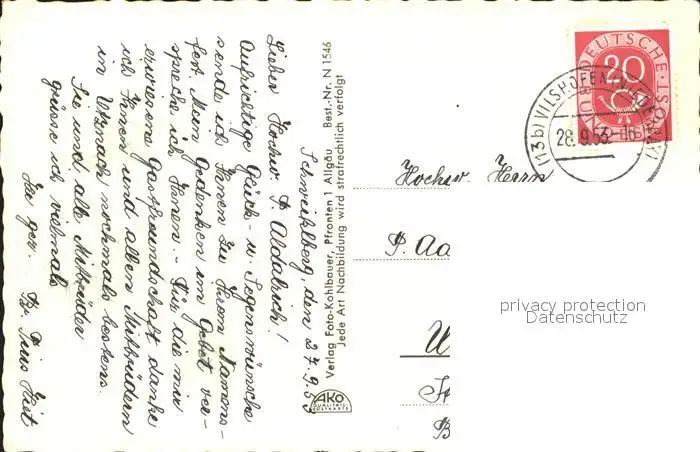 Schweiklberg, den 27.9.53
Lieber Hochw. P. Aldabrich!
Aufrichtige Glück- u. Segenswünsche
sende ich Ihnen zu Ihrem Namens-
fest. Mein Gedenken im Gebet ver-
spreche ich Ihnen. – Für die mir
erwiesene Gastfreundschaft danke
ich Ihnen und allen Mitbrüdern
in Uznach nochmals bestens.
Sie und alle Mitbrüder
grüsse ich vielmals
Ihr ger. Br. Pius
Verlag Foto-Kohlbauer, Pfronten 1 Allgäu Best.-Nr. N 1546
Jede Art Nachbildung wird strafrechtlich verfolgt
AKO
QUALITÄTS
POSTKARTE
DEUTSCHE POST
20
(13b) VILSHOFEN
28.9.53
Hochw. Herrn
P. Aa
U
B
privacy protection
Datenschutz